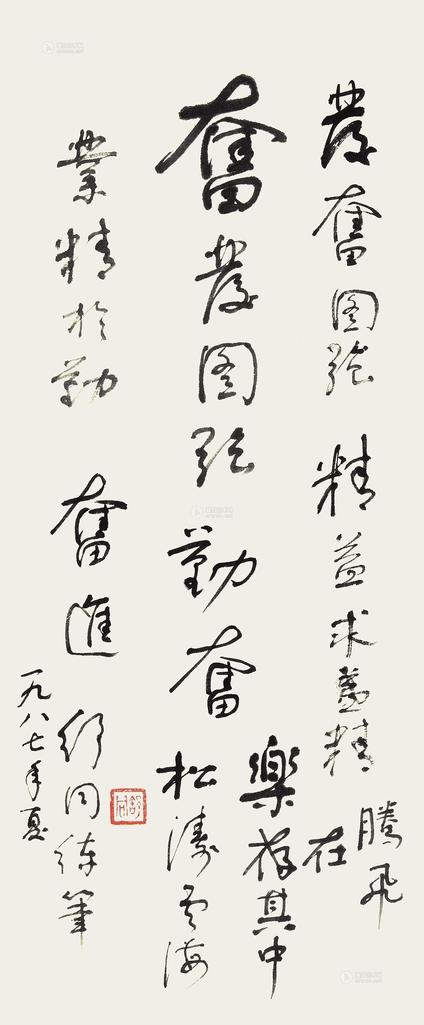 發奮图强 精益求益精
騰飛
在
樂存其中
奮發图强 勤奮
松濤雲海
業精於勤 奮進
舒同練筆
一九八七年夏
舒同